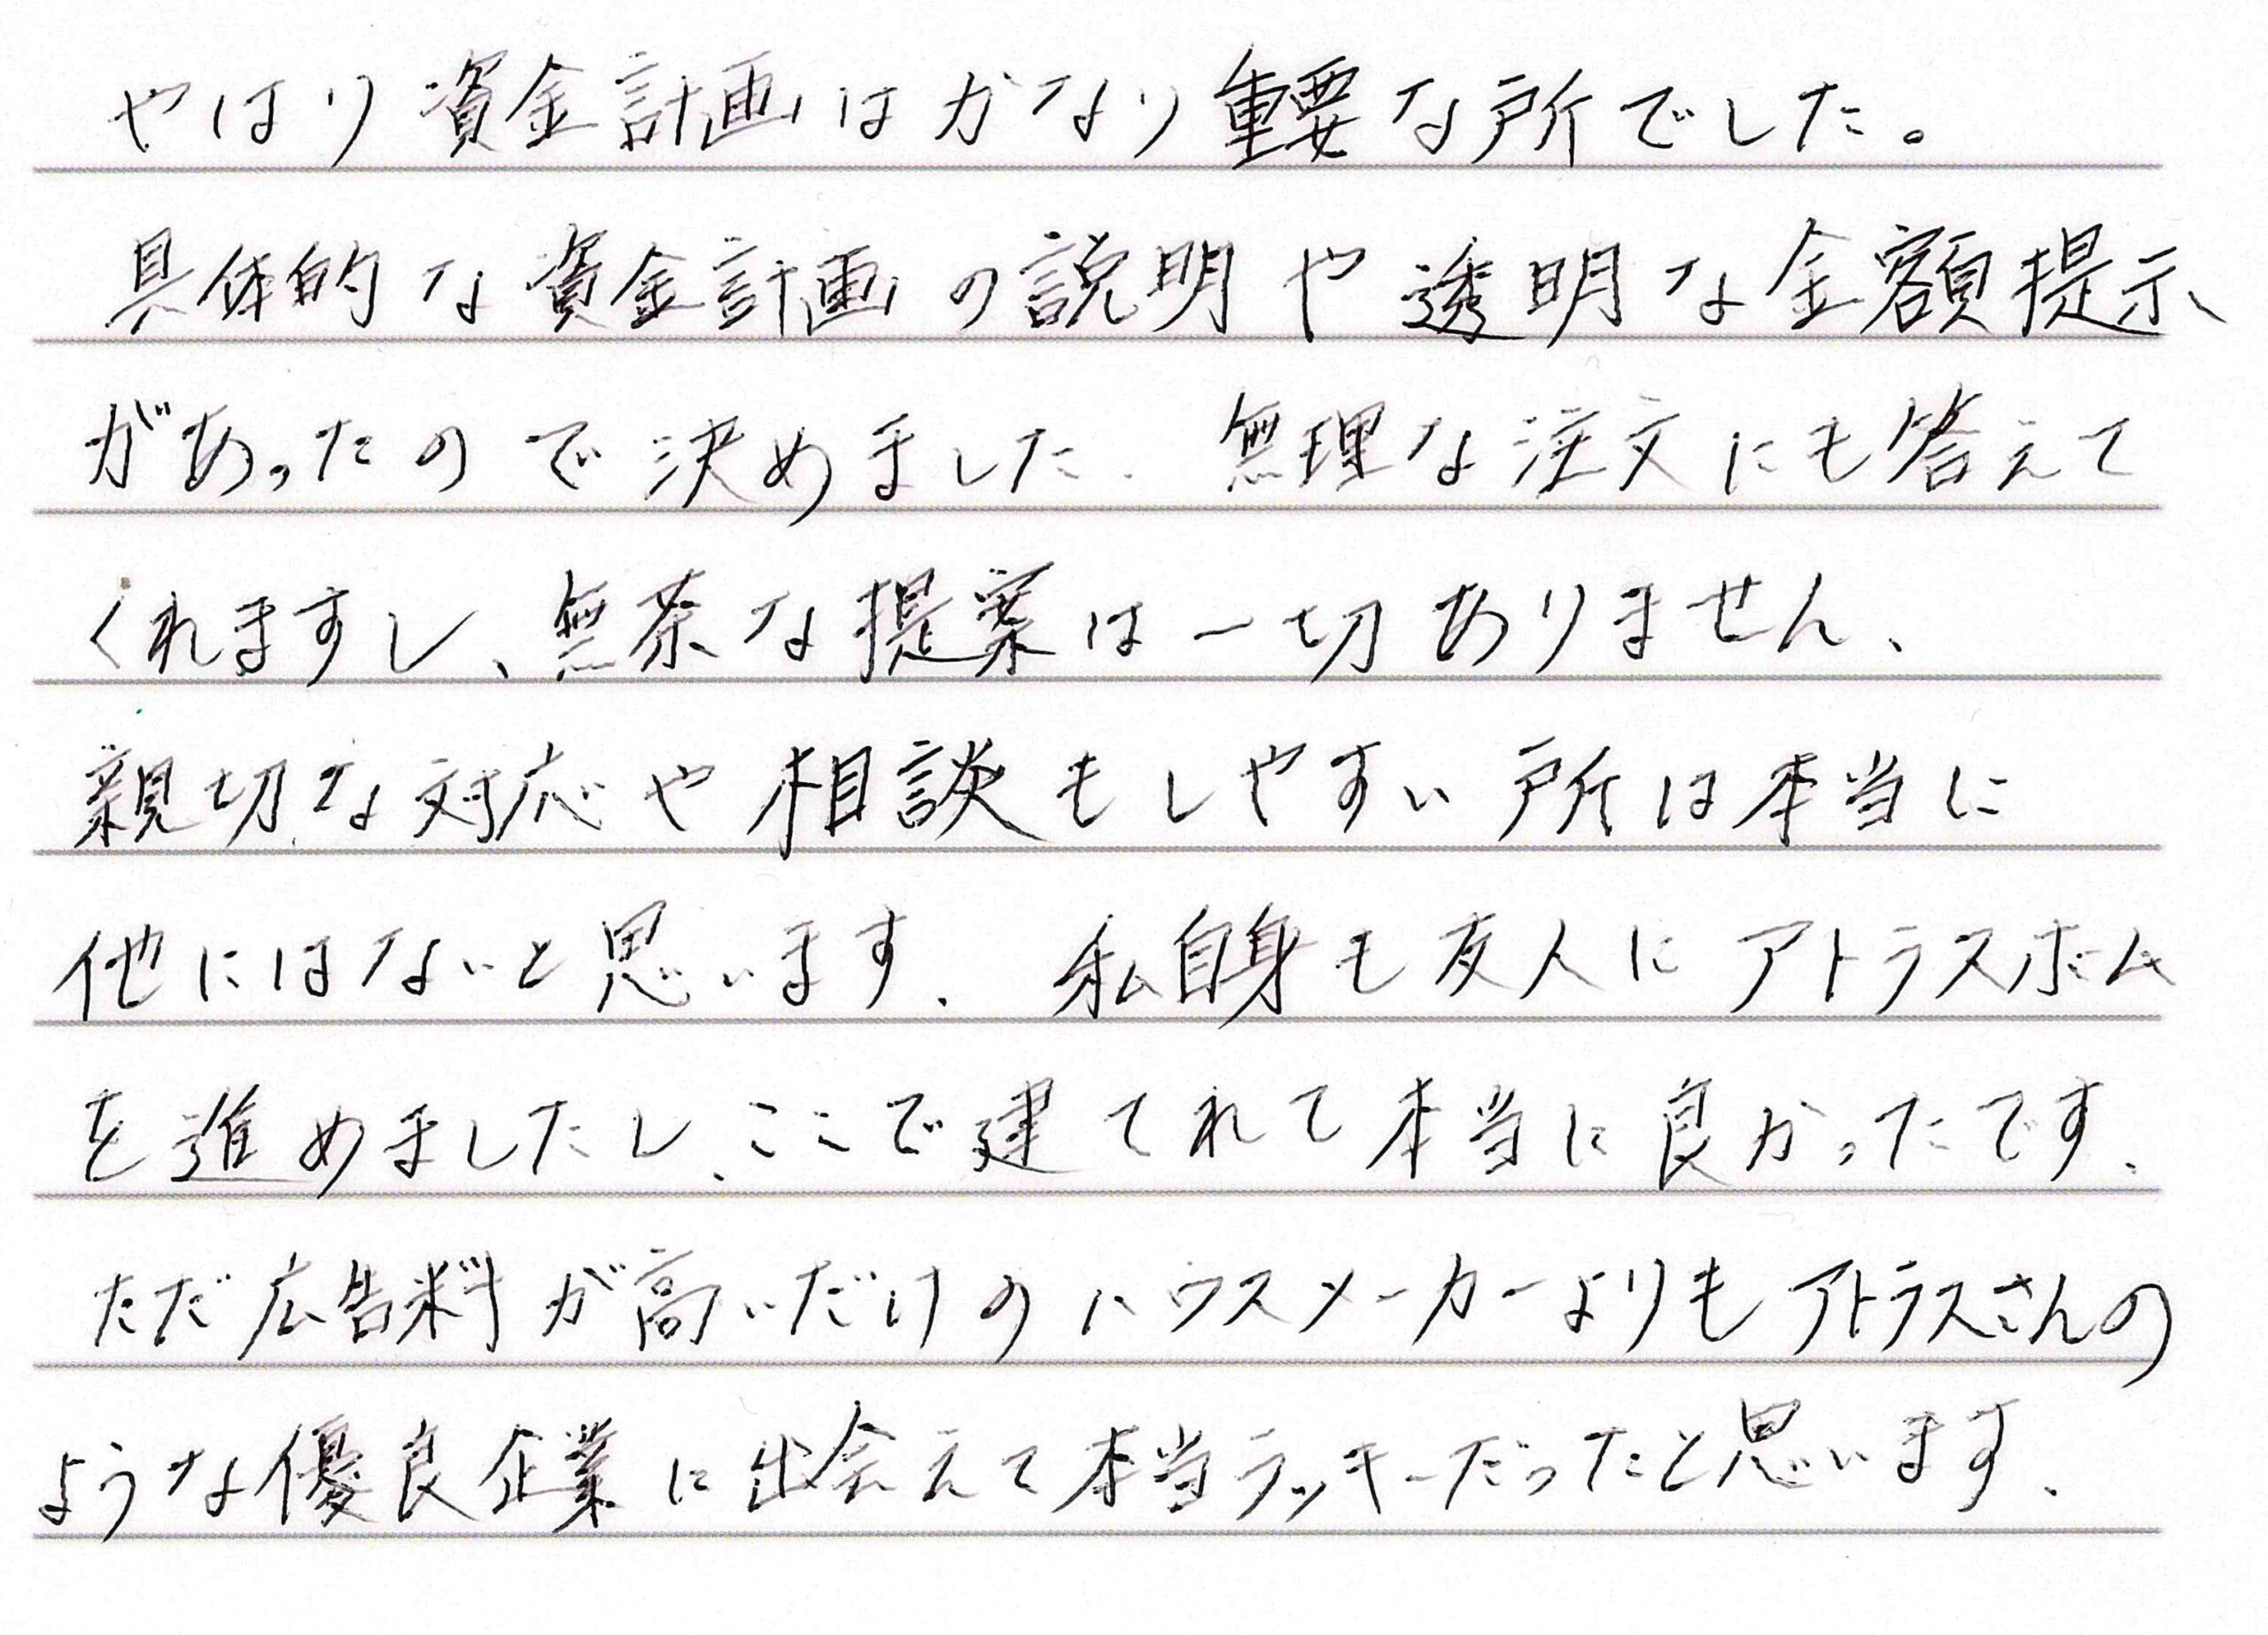 やはり資金計画はかなり重要な所でした。
具体的な資金計画の説明や透明な金額提示
があったので決めました. 無理な注文にも答えて
くれますし、無茶な提案は一切ありません、
親切な対応や相談もしやすい所は本当に
他にはないと思います. 私自身も友人にアトラスホーム
を進めましたし、ここで建てれて本当に良かったです.
ただ広告料が高いだけのハウスメーカーよりもアトラスさんの
ような優良企業に出会えて本当ラッキーだったと思います.